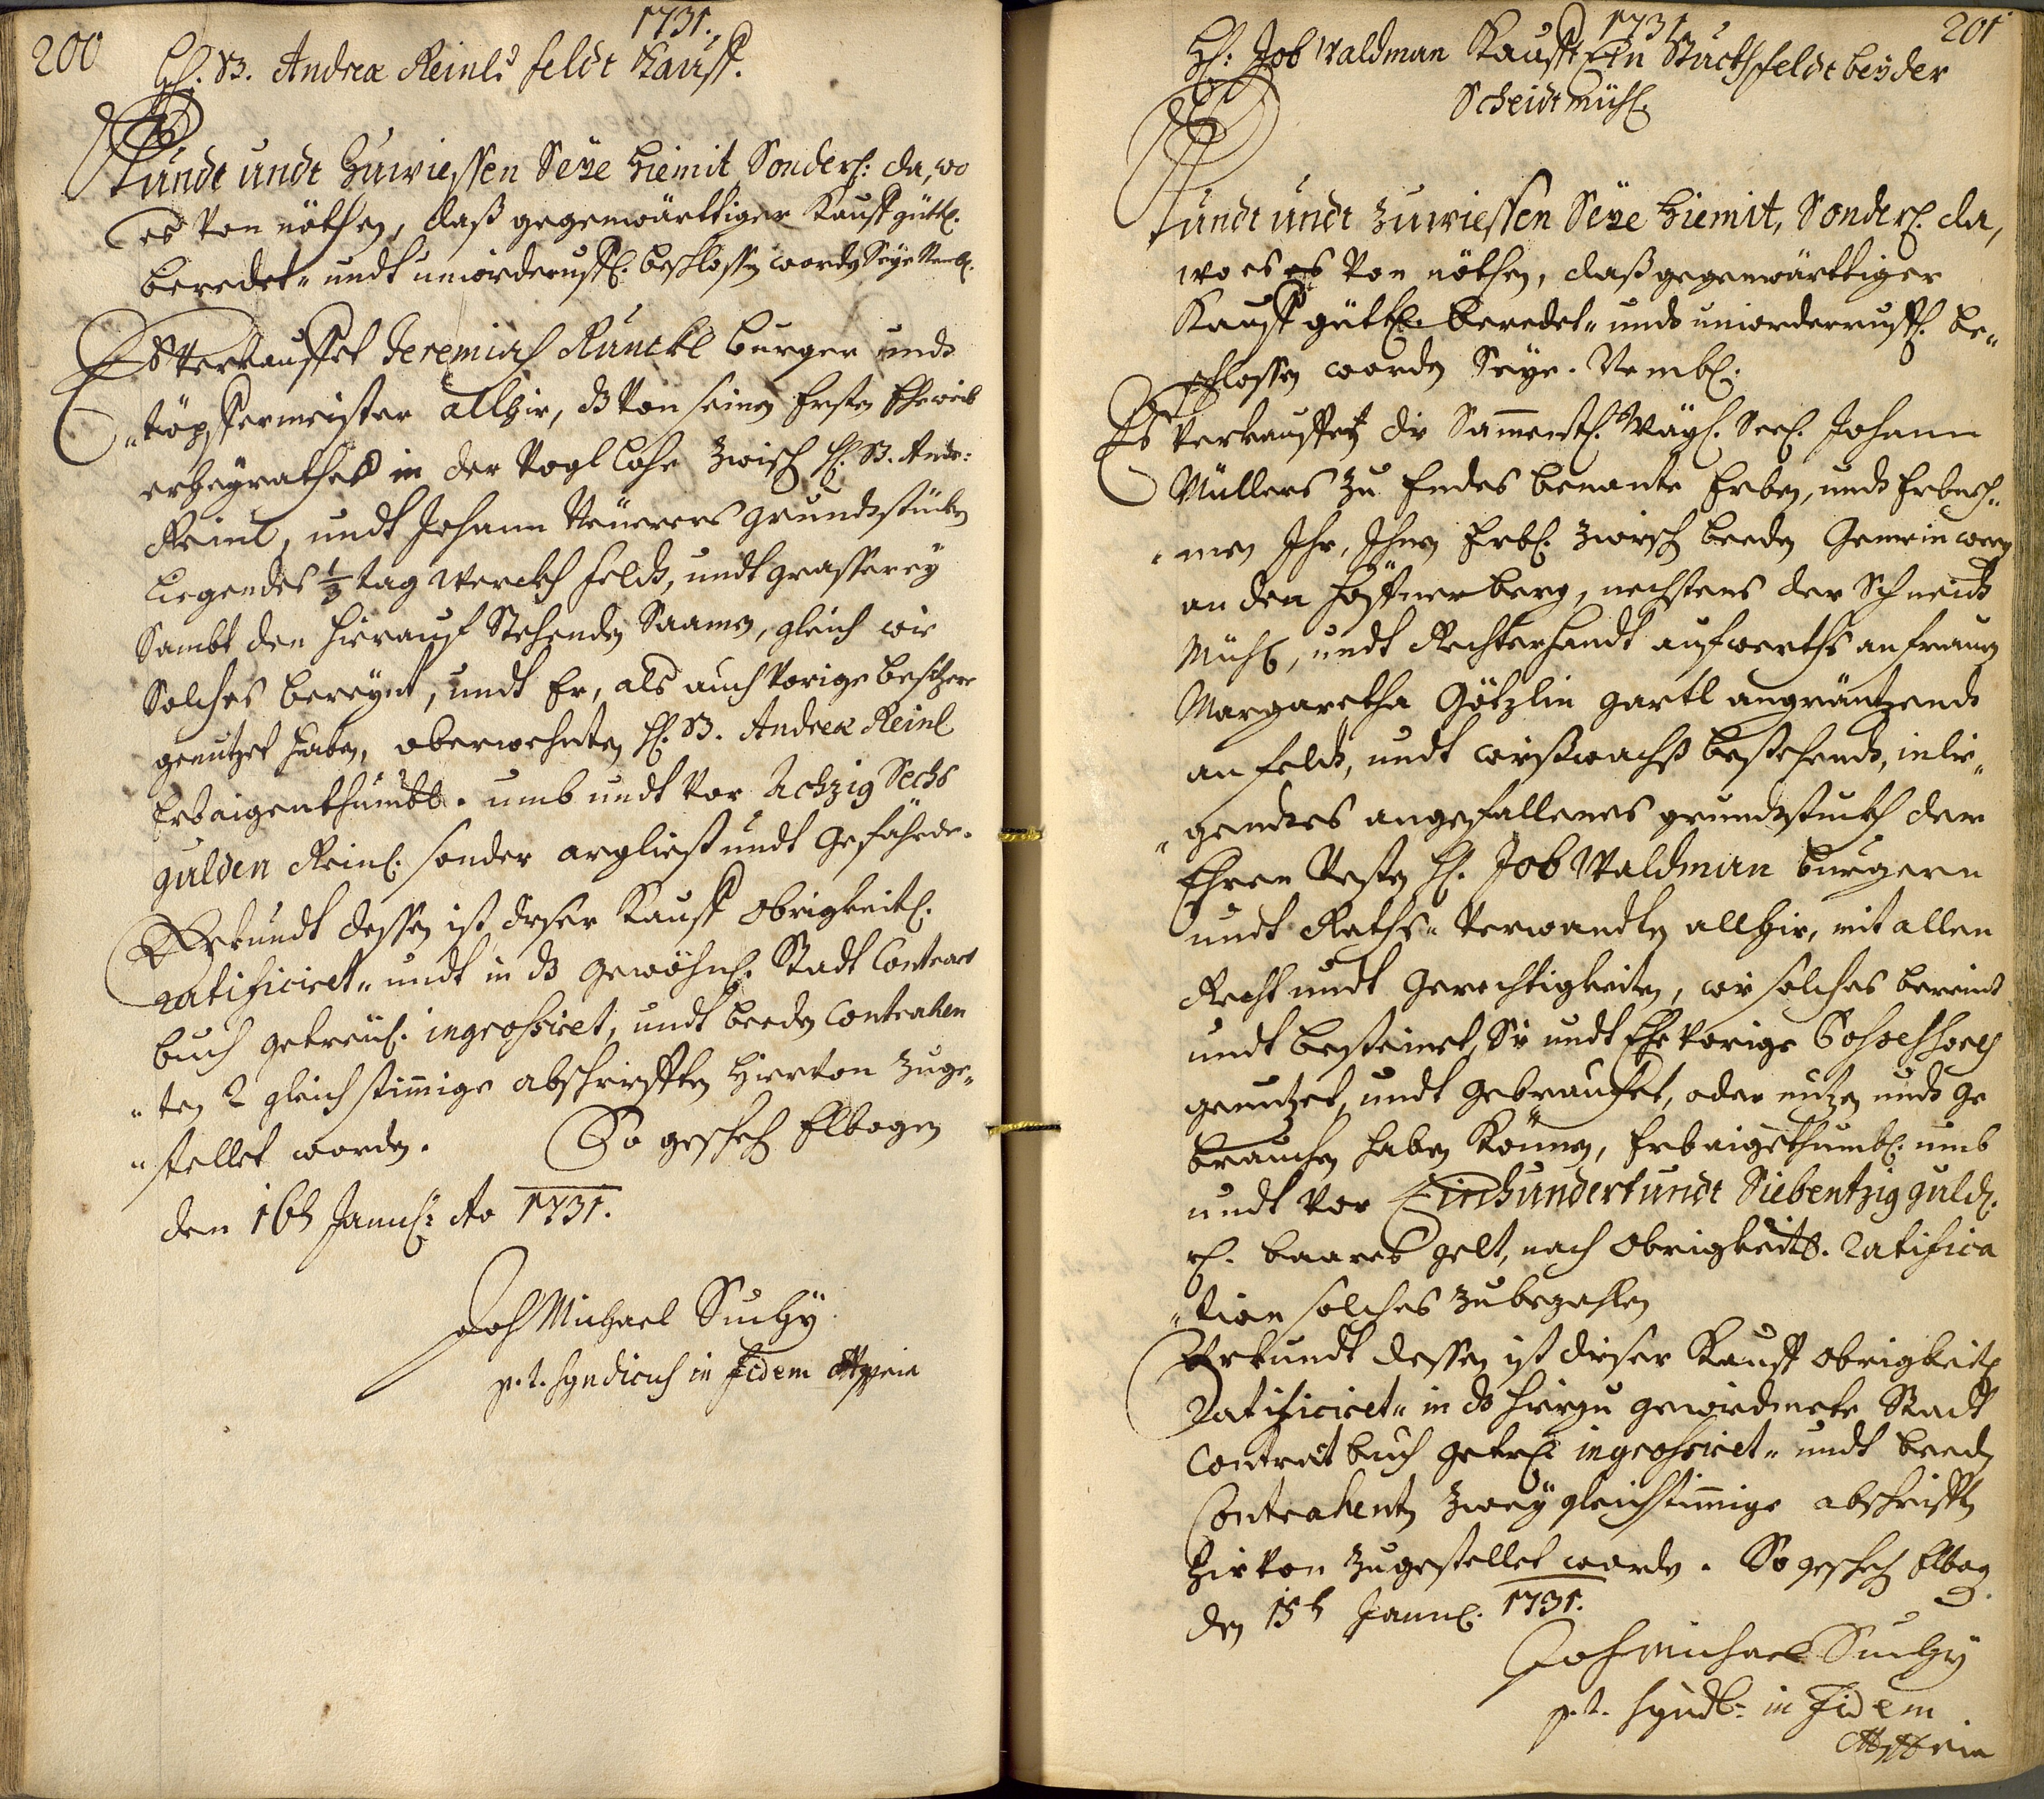 200
1731.
H: B. Andrea Reinls feldt Kauff.
Kundt undt Zuwiessen Seye hiemit Sonderl: da, wo
es von nöthen, daß gegenwärttiger Kauff güttl.
beredet- undt unwiderruffl. beschlossen worden Seye Nembl.
Es Verkauffet Jeremias Runckl burger undt
töpffermeister allhir, dz von seinen Ersten Eheweib
erheyrathes in der Vogl Lohe zwisch H. B. Andr:
Reinl, undt Johann Neuerers grundtstücken
liegendes 1/3 tag werckh feldt, undt grasserey
Sambt den hierauf Stehenden Saamen, gleich wie
Solches bereynt, undt Er, als auch vorige besitzere
genutzet haben, oberwehnten H. B. Andrea Reinl
Erbaigenthumbl. umb undt vor Achzig Sechs
gulden Reinl. sonder arglist undt Gefährde.
Uhrkundt dessen ist dieser Kauff obrigkeitl.
ratificiret- undt in dz gewöhnl. Stadt Contract
buch getreul. ingrossiret, undt beeden Contrahen
ten 2 gleich stimige abschrifften hiervon zuge-
stellet worden. So gescheh Elbogen
den 16t Januar: Ao 1731.
Joh Michael Suchy
p. t. Syndicus in Fidem
201
1731
H: Job Waldman Kaufft Ein Stuckh feldt bey der
Scheidtmühl.
Kundt undt Zuwiessen Seye hiemit, Sonderl. da,
wo es es von nöthen, daß gegenwärttiger
Kauff güttl. beredet- undt unwiderruffl. be-
schlossen worden Seye. Nembl:
Es verkauffen die Samentl. Wayl. Seel. Johann
Müllers zu Endes benante Erben, undt Erbneh-
men Ihr, Ihnen Erbl. zwisch beeden Gemein weeg
an den Höffnerberg, nechstens der Schneidt
Mühl, undt Rechterhandt aufwerths an frauen
Margaretha Götzlin gartl angräntzendt
an feldt, undt wießwachs bestehendt, inlie-
gendtes angefallenes grundtstuckh dem
Ehren Vesten H. Job Waldman burgern
undt Raths- Verwandten allhir, mit allen
Recht undt Gerechtigkeiten, wie solches bereint
undt besteinet, Sie undt Ehevorige
genutzet, undt gebrauchet, oder nutzen undt ge
brauchen haben können, Erbaigethumbl. umb
undt vor Einhundert undt Siebentzig guld.
rl. baares gelt, nach Obrigkeitl. Ratifica
tion solches zubezahlen
Uhrkundt dessen ist dieser Kauff obrigkeitl
Ratificiret- in dz hierzu gewidmete Stadt
Contract buch getrl ingrossiret- undt beeden
Contrahenten zwey gleichstimige abschrifften
hievon zugestellet worden. So gescheh Elbog
den 15t Januar. 1731.
Joh Michael Suchy
p. t. Syndic: in Fidem